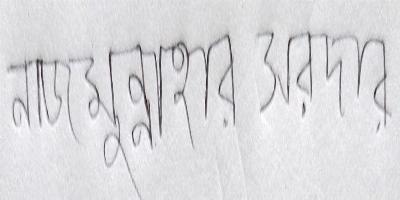 নাজমুন্নাহার সরদার